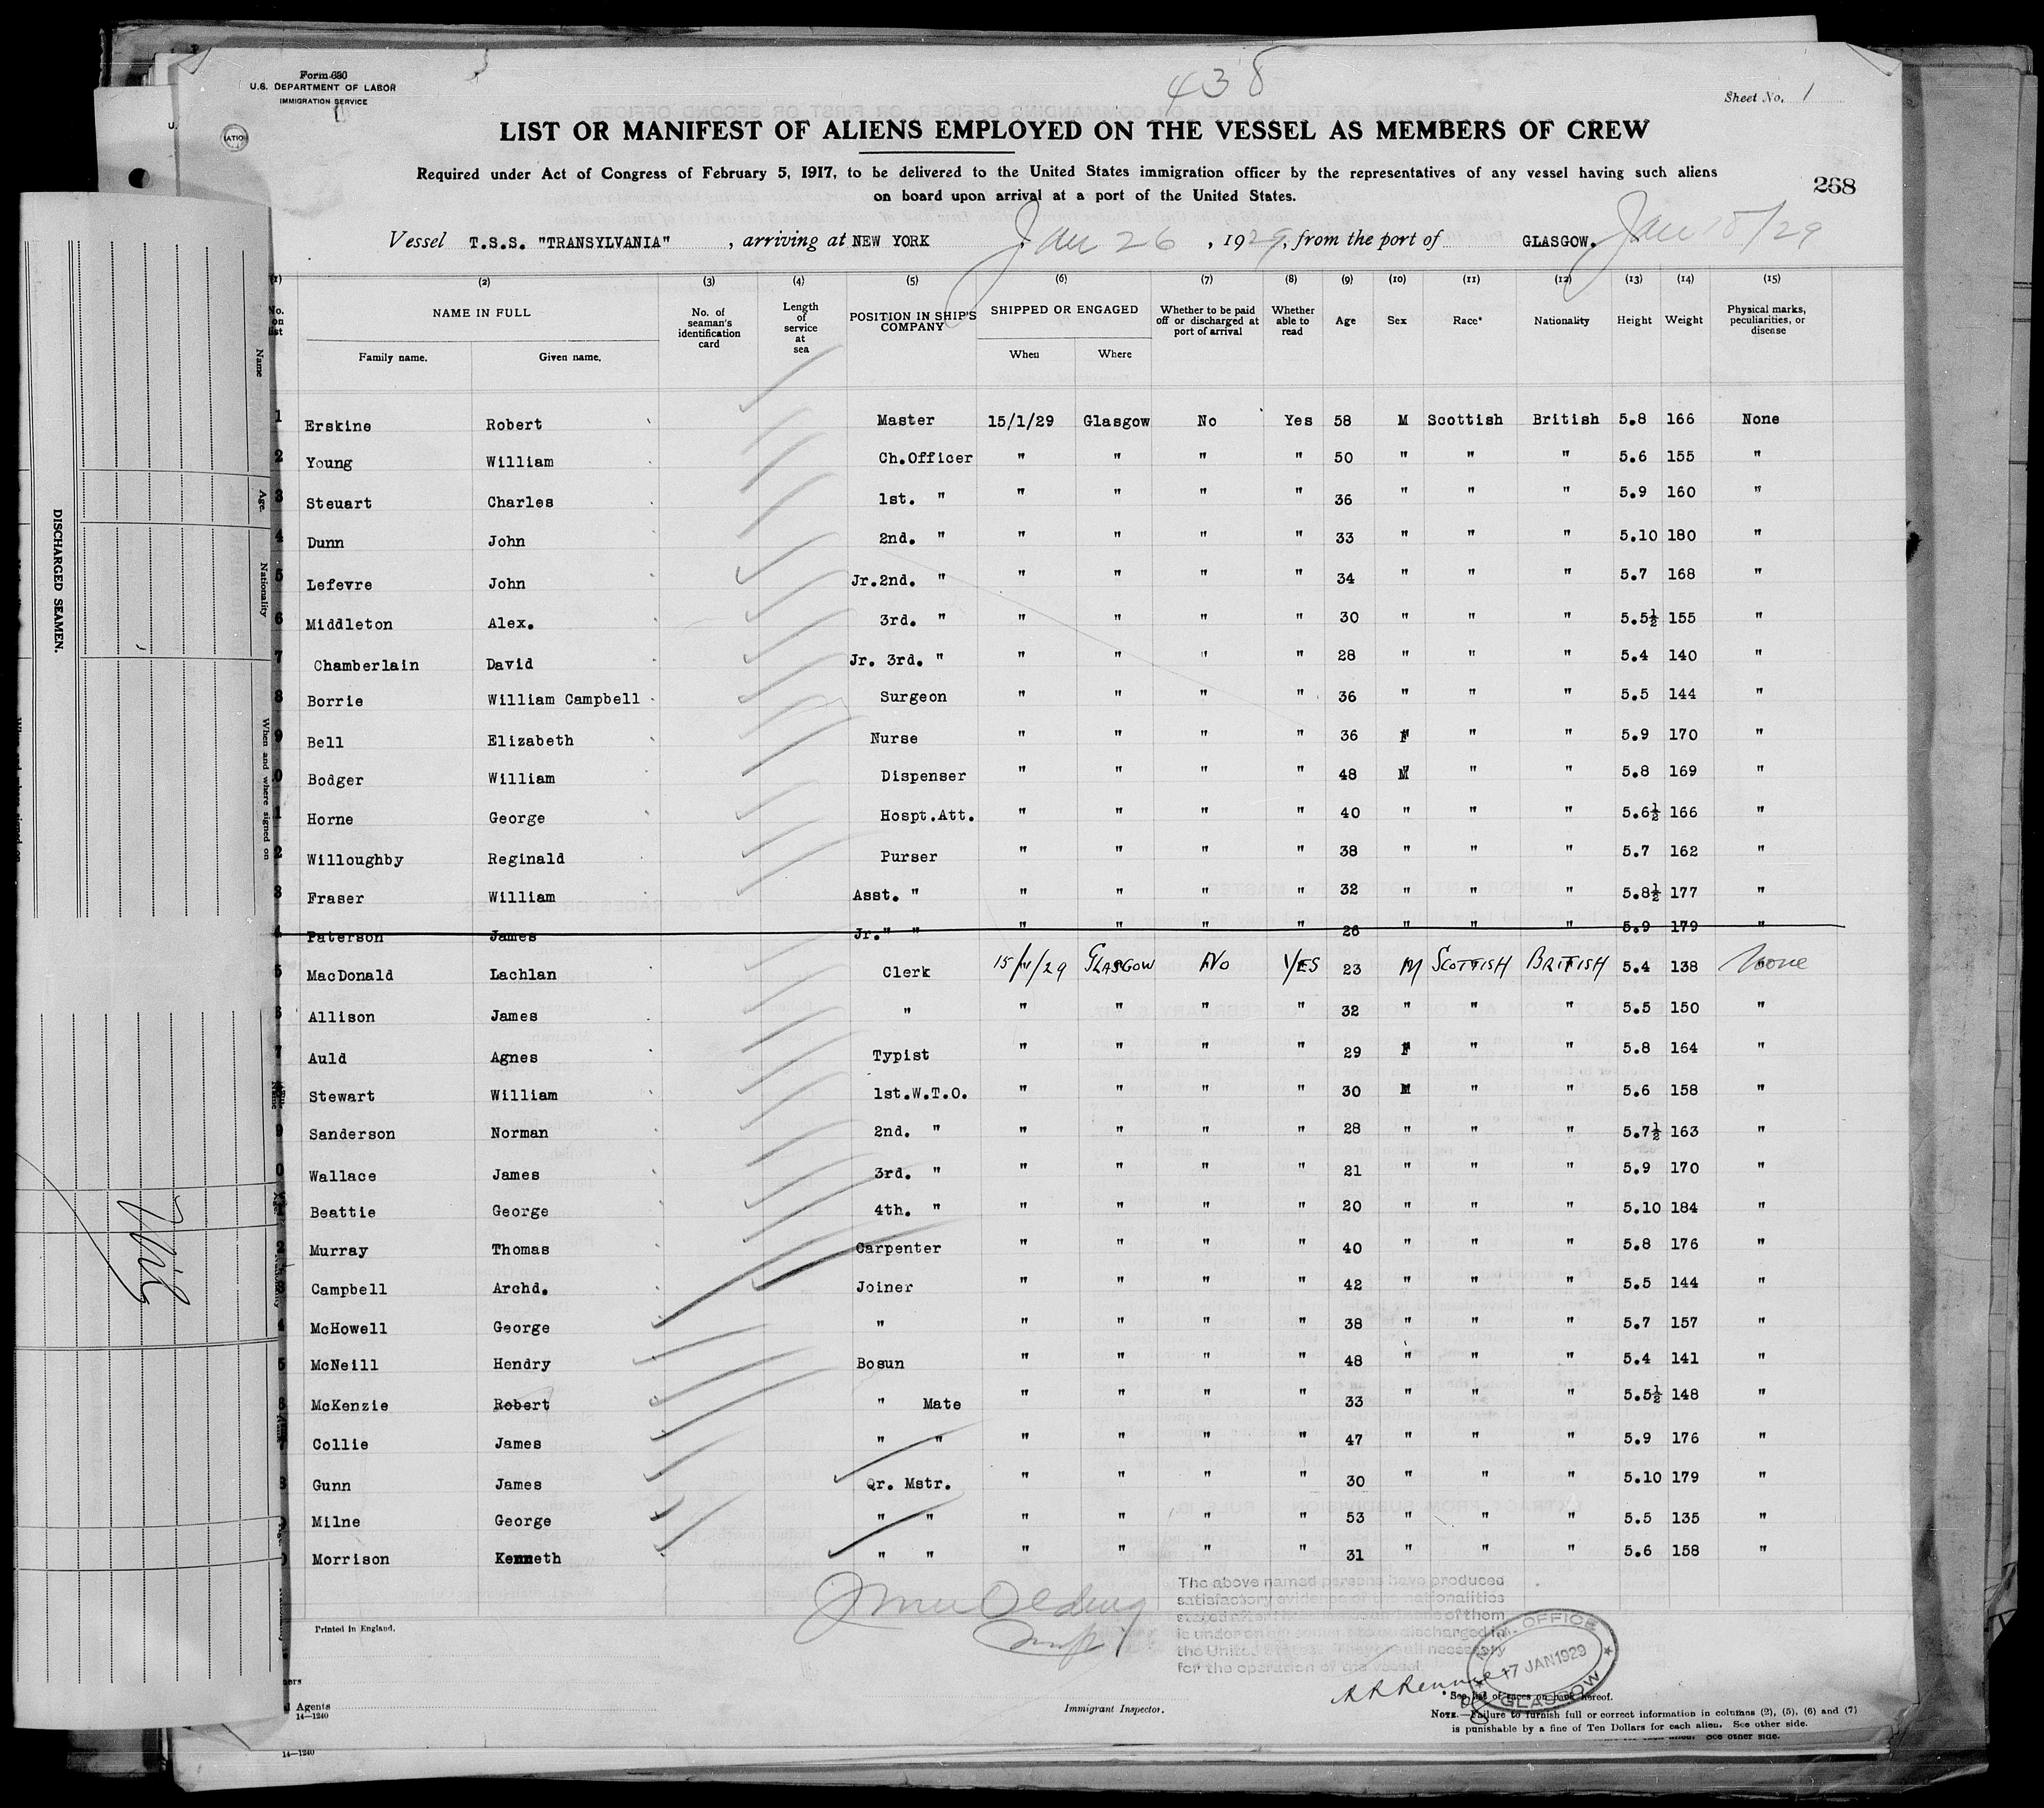 Form 680
U.S. DEPARTMENT OF LABOR
IMMIGRATION SERVICE
438
Sheet No. 1
LIST OR MANIFEST OF ALIENS EMPLOYED ON THE VESSEL AS MEMBERS OF CREW
Required under Act of Congress of February 5, 1917, to be delivered to the United States immigration officer by the representatives of any vessel having such aliens
on board upon arrival at a port of the United States.
268
Vessel T.S.S. "TRANSYLVANIA" , arriving at NEW YORK Jan 26 , 1929, from the port of GLASGOW. Jan /29
(1) (2) (3) (4) (5) (6) (7) (8) (9) (10) (11) (12) (13) (14) (15)
No. on list NAME IN FULL Family name. Given name. No. of seaman's identification card Length of service at sea POSITION IN SHIP'S COMPANY SHIPPED OR ENGAGED When Where Whether to be paid off or discharged at port of arrival Whether able to read Age Sex Race* Nationality Height Weight Physical marks, peculiarities, or disease
1 Erskine Robert Master 15/1/29 Glasgow No Yes 58 M Scottish British 5.8 166 None
2 Young William Ch.Officer " " " " 50 " " " 5.6 155 "
3 Steuart Charles 1st. " " " " " 36 " " " 5.9 160 "
4 Dunn John 2nd. " " " " " 33 " " " 5.10 180 "
5 Lefevre John Jr.2nd. " " " " " 34 " " " 5.7 168 "
6 Middleton Alex. 3rd. " " " " " 30 " " " 5.5½ 155 "
7 Chamberlain David Jr. 3rd. " " " " " 28 " " " 5.4 140 "
8 Borrie William Campbell Surgeon " " " " 36 " " " 5.5 144 "
9 Bell Elizabeth Nurse " " " " 36 F " " 5.9 170 "
0 Bodger William Dispenser " " " " 48 M " " 5.8 169 "
1 Horne George Hospt.Att. " " " " 40 " " " 5.6½ 166 "
2 Willoughby Reginald Purser " " " " 38 " " " 5.7 162 "
3 Fraser William Asst. " " " " " 32 " " " 5.8½ 177 "
4 Paterson James Jr." " " " " " 26 " " " 5.9 179 "
5 MacDonald Lachlan Clerk 15/1/29 GLASGOW No YES 23 M SCOTTISH BRITISH 5.4 138 None
6 Allison James " " " " " 32 " " " 5.5 150 "
7 Auld Agnes Typist " " " " 29 F " " 5.8 164 "
Stewart William 1st.W.T.O. " " " " 30 M " " 5.6 158 "
9 Sanderson Norman 2nd. " " " " " 28 " " " 5.7½ 163 "
0 Wallace James 3rd. " " " " " 21 " " " 5.9 170 "
Beattie George 4th. " " " " " 20 " " " 5.10 184 "
2 Murray Thomas Carpenter " " " " 40 " " " 5.8 176 "
3 Campbell Archd. Joiner " " " " 42 " " " 5.5 144 "
4 McHowell George " " " " " 38 " " " 5.7 157 "
5 McNeill Hendry Bosun " " " " 48 " " " 5.4 141 "
6 McKenzie Robert " Mate " " " " 33 " " " 5.5½ 148 "
Collie James " " " " " " 47 " " " 5.9 176 "
Gunn James Qr. Mstr. " " " " 30 " " " 5.10 179 "
Milne George " " " " " " 53 " " " 5.5 135 "
Morrison Kenneth " " " " " " 31 " " " 5.6 158 "
The above named persons have produced
satisfactory evidence of the nationalities
of them
is under discharged in
the United States. They are all necessary
for the operation of the vessel.
OFFICE
17 JAN 1929
GLASGOW
Printed in England.
Immigrant Inspector.
*See list of races on back hereof.
NOTE.—Failure to furnish full or correct information in columns (2), (5), (6) and (7)
is punishable by a fine of Ten Dollars for each alien. See other side.
Agents
14—1240
14—1240
See other side.
DISCHARGED SEAMEN.
Name
Age.
Nationality
When and where signed on